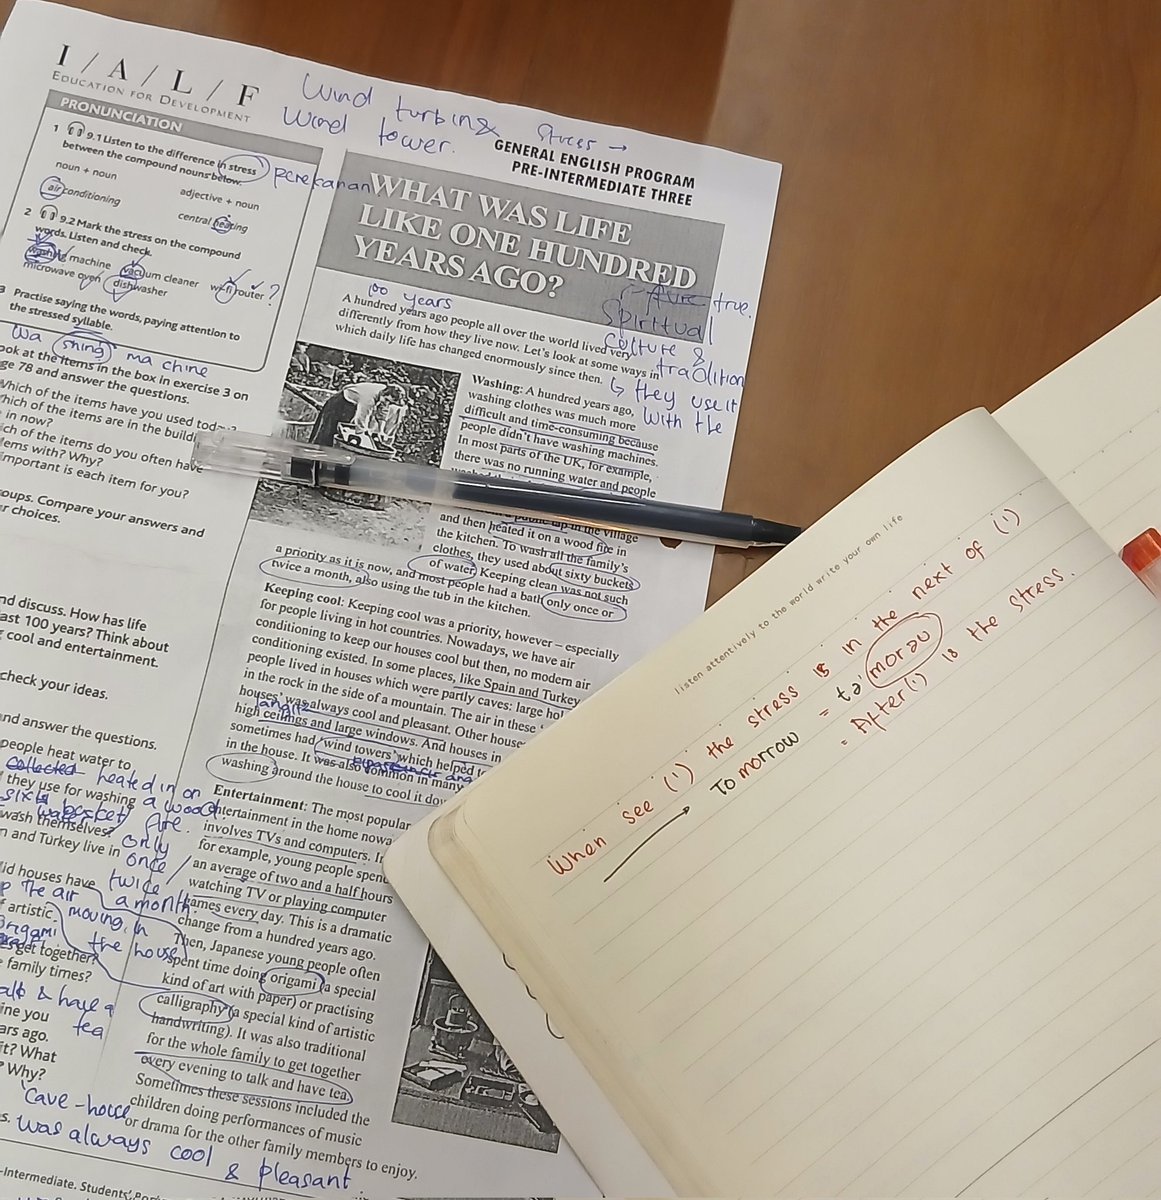 I / A / L / F
EDUCATION FOR DEVELOPMENT
Wind turbin&
Wind tower.
stress →
GENERAL ENGLISH PROGRAM
PRE-INTERMEDIATE THREE
PRONUNCIATION
1 9.1 Listen to the difference in stress
between the compound nouns below.
noun + noun
adjective + noun
air conditioning
central heating
2 9.2 Mark the stress on the compound
words. Listen and check.
washing machine
vacuum cleaner
wi-fi router ?
microwave oven
dishwasher
3 Practise saying the words, paying attention to
the stressed syllable.
wa shing ma chine
ook at the items in the box in exercise 3 on
ge 78 and answer the questions.
Which of the items have you used today?
hich of the items are in the buildi
in now?
ich of the items do you often have
ems with? Why?
important is each item for you?
oups. Compare your answers and
ur choices.
nd discuss. How has life
ast 100 years? Think about
g cool and entertainment.
check your ideas.
and answer the questions.
people heat water to
collected heated in on
they use for washing
a wood
fire.
wash themselves?
only
once /
twice
a month.
n and Turkey live in
id houses have
the air
moving in
the house
f artistic
origami
es get together?
family times?
& have a
tea
ine you
ars ago.
it? What
? Why?
'cave-house
s. was always cool & pleasant
-Intermediate. Students'
WHAT WAS LIFE
LIKE ONE HUNDRED
YEARS AGO?
100 years
true.
Spirttual
Culture &
tradition
↳ they use it
with the
A hundred years ago people all over the world lived very
differently from how they live now. Let's look at some ways in
which daily life has changed enormously since then.
Washing: A hundred years ago,
washing clothes was much more
difficult and time-consuming because
people didn't have washing machines.
In most parts of the UK, for example,
there was no running water and people
public tap in the village
and then heated it on a wood fire in
the kitchen. To wash all the family's
clothes, they used about sixty buckets
of water. Keeping clean was not such
a priority as it is now, and most people had a bath only once or
twice a month, also using the tub in the kitchen.
Keeping cool: Keeping cool was a priority, however – especially
for people living in hot countries. Nowadays, we have air
conditioning to keep our houses cool but then, no modern air
conditioning existed. In some places, like Spain and Turkey
people lived in houses which were partly caves: large hol
in the rock in the side of a mountain. The air in these '
houses' was always cool and pleasant. Other house
langit
high ceilings and large windows. And houses in
sometimes had 'wind towers' which helped t
in the house. It was also common in many
washing around the house to cool it dow
Entertainment: The most popular
entertainment in the home nowa
involves TVs and computers. I
for example, young people spend
an average of two and a half hours
watching TV or playing computer
games every day. This is a dramatic
change from a hundred years ago.
Then, Japanese young people often
spent time doing origami (a special
kind of art with paper) or practising
calligraphy (a special kind of artistic
handwriting). It was also traditional
for the whole family to get together
every evening to talk and have tea.
Sometimes these sessions included the
children doing performances of music
or drama for the other family members to enjoy.
listen attentively to the world write your own life
When see (') the stress is in the next of (')
→ Tomorrow = tə'morəʊ
= After (') is the stress.